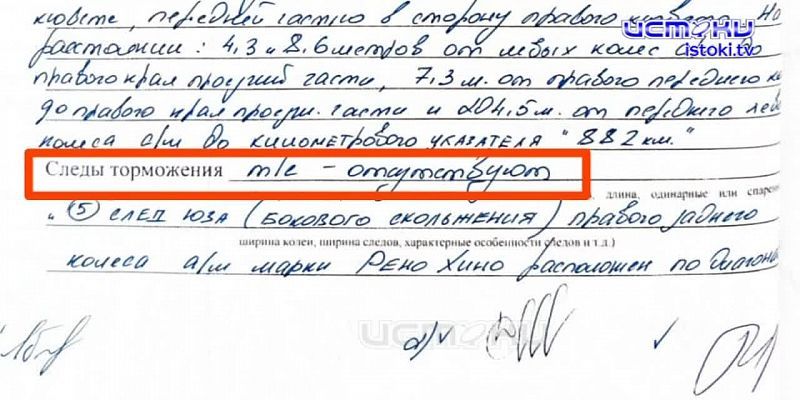 кювете, передней частью в сторону правого кювета. На
расстоянии: 4,3 и 8,6 метров от левых колес а/м до
правого края проезжей части, 7,3 м. от правого переднего
до правого края проезж. части и 204,5 м. от переднего
колеса а/м до километрового указателя "882 км."
Следы торможения т/с – отсутствуют
длина, одинарные или
"⑤ след юза (бокового скольжения) правого заднего
ширина колеи, ширина следов, характерные особенности следов и т.д.)
колеса а/м марки Рено Хино расположен по
истоки
istoki.tv
истоки